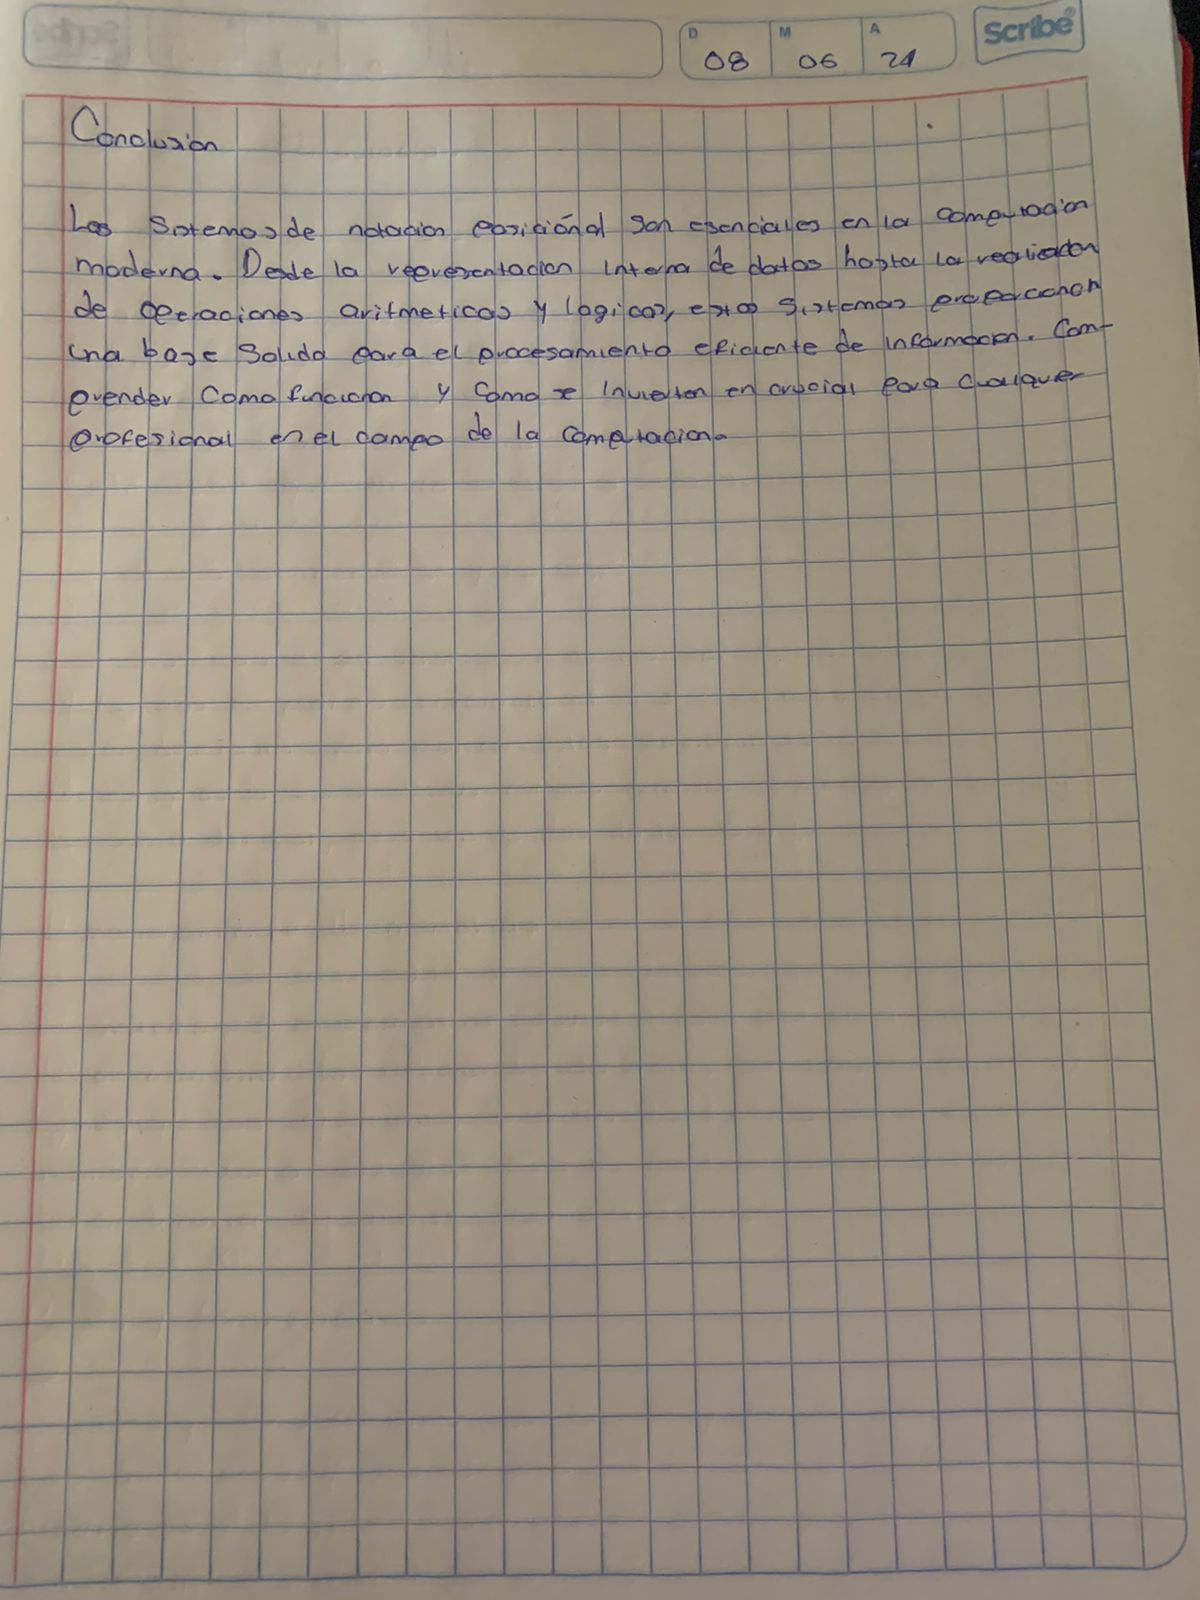 D 08 M 06 A 24 Scribe
Conclusion
Los Sistemas de notacion posiciónal son esenciales en la computacion
moderna. Desde la representacion interna de datos hasta la realizacion
de operaciones aritmeticas y logicas, estos sistemas proporcionan
una base solida para el procesamiento eficiente de informacion. Com-
prender como funcionan y como se invierten en crucial para cualquier
profesional en el campo de la computacion.